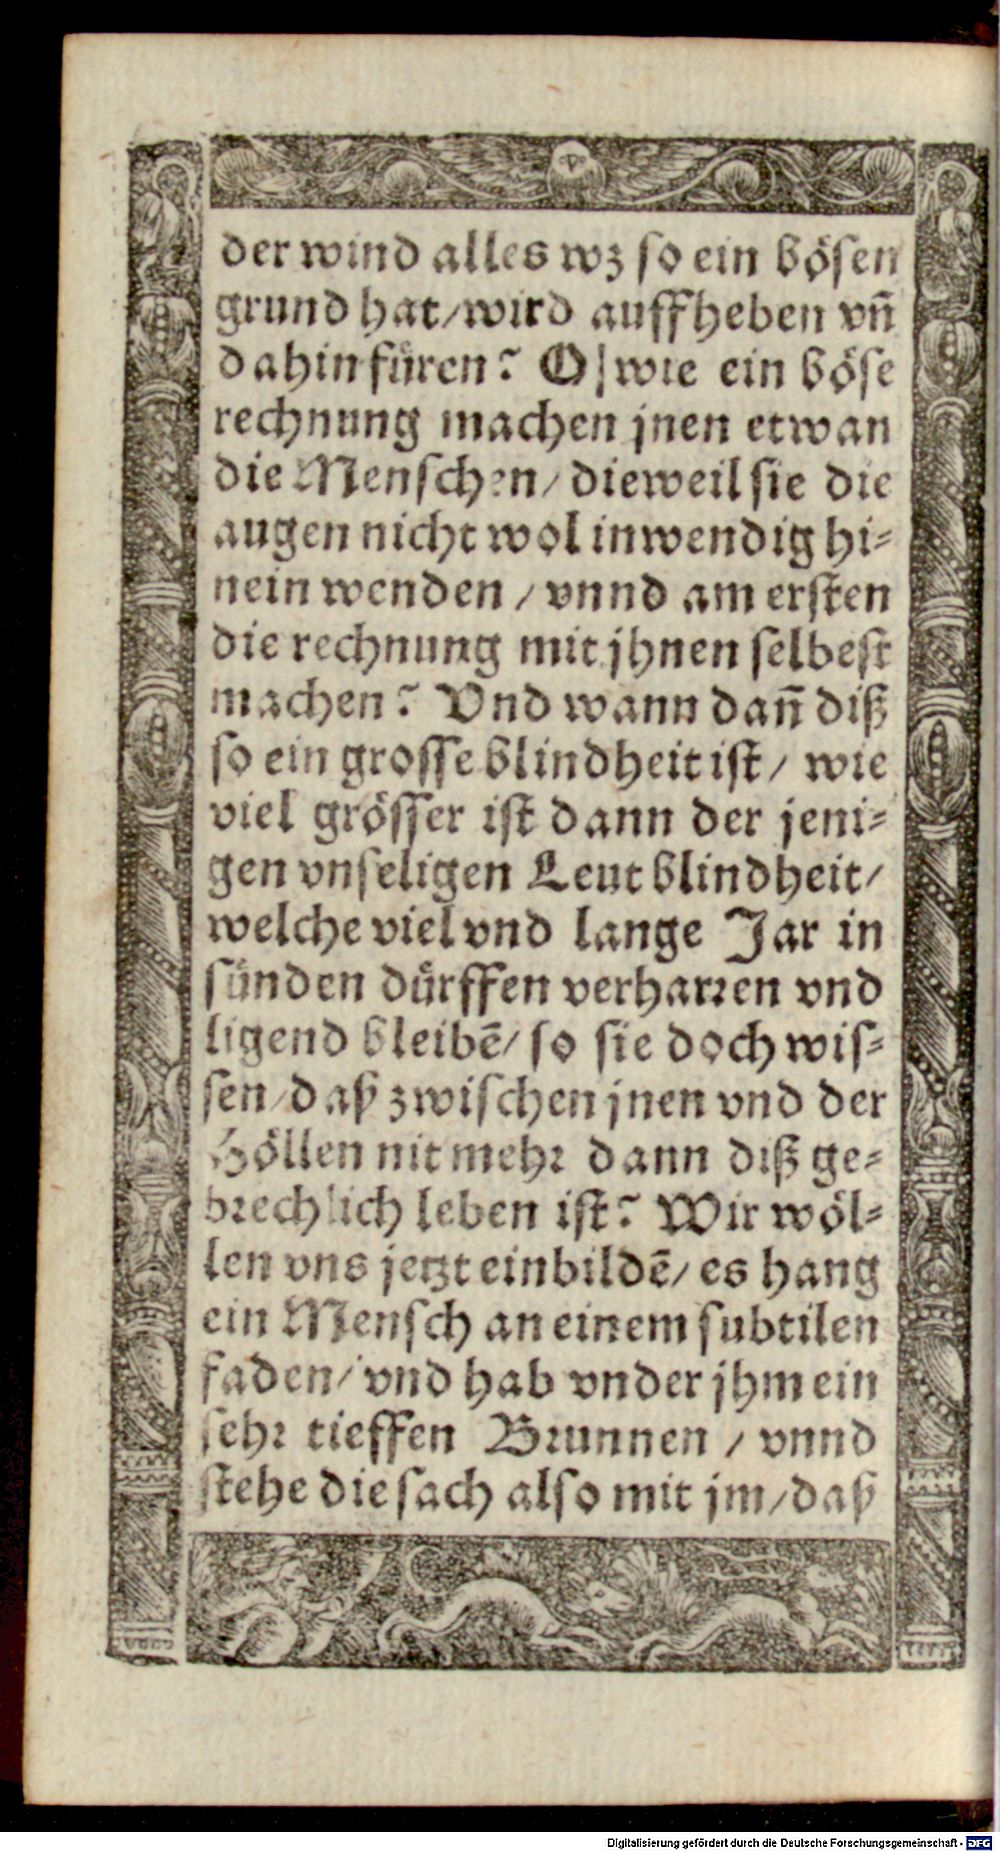 der wind alles wz so ein bösen
grund hat/wird auffheben vñ
dahin füren? O/wie ein böse
rechnung machen jnen etwan
die Menschen/ dieweil sie die
augen nicht wol inwendig hi-
nein wenden / vnnd am ersten
die rechnung mit jhnen selbest
machen? Vnd wann dañ diß
so ein grosse blindheit ist/ wie
viel grösser ist dann der jeni-
gen vnseligen Leut blindheit/
welche viel vnd lange Jar in
sünden dürffen verharren vnd
ligend bleibẽ/ so sie doch wis-
sen/daß zwischen jnen vnd der
Höllen nit mehr dann diß ge-
brechlich leben ist? Wir wöl-
len vns jetzt einbildẽ/ es hang
ein Mensch an einem subtilen
faden/ vnd hab vnder jhm ein
sehr tieffen Brunnen / vnnd
stehe die sach also mit jm/daß
Digitalisierung gefördert durch die Deutsche Forschungsgemeinschaft - DFG